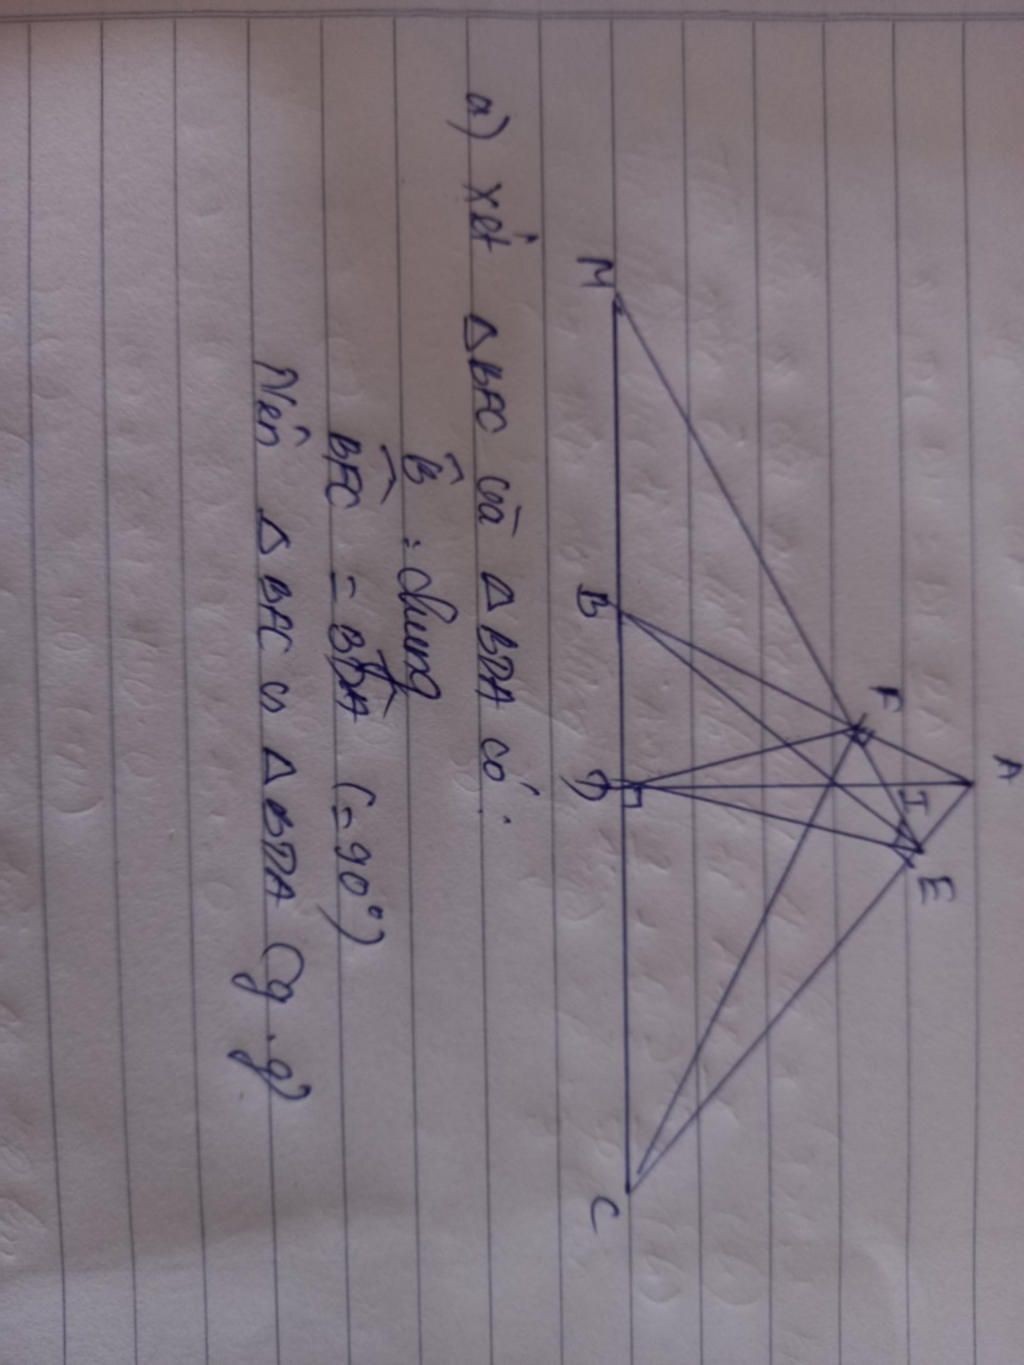 A
F
I
E
M
B
D
C
a) xét ΔBFC và ΔBDA có:
B̂ : chung
B̂FC = B̂DA (= 90°)
Nên ΔBFC ᔕ ΔBDA (g.g)